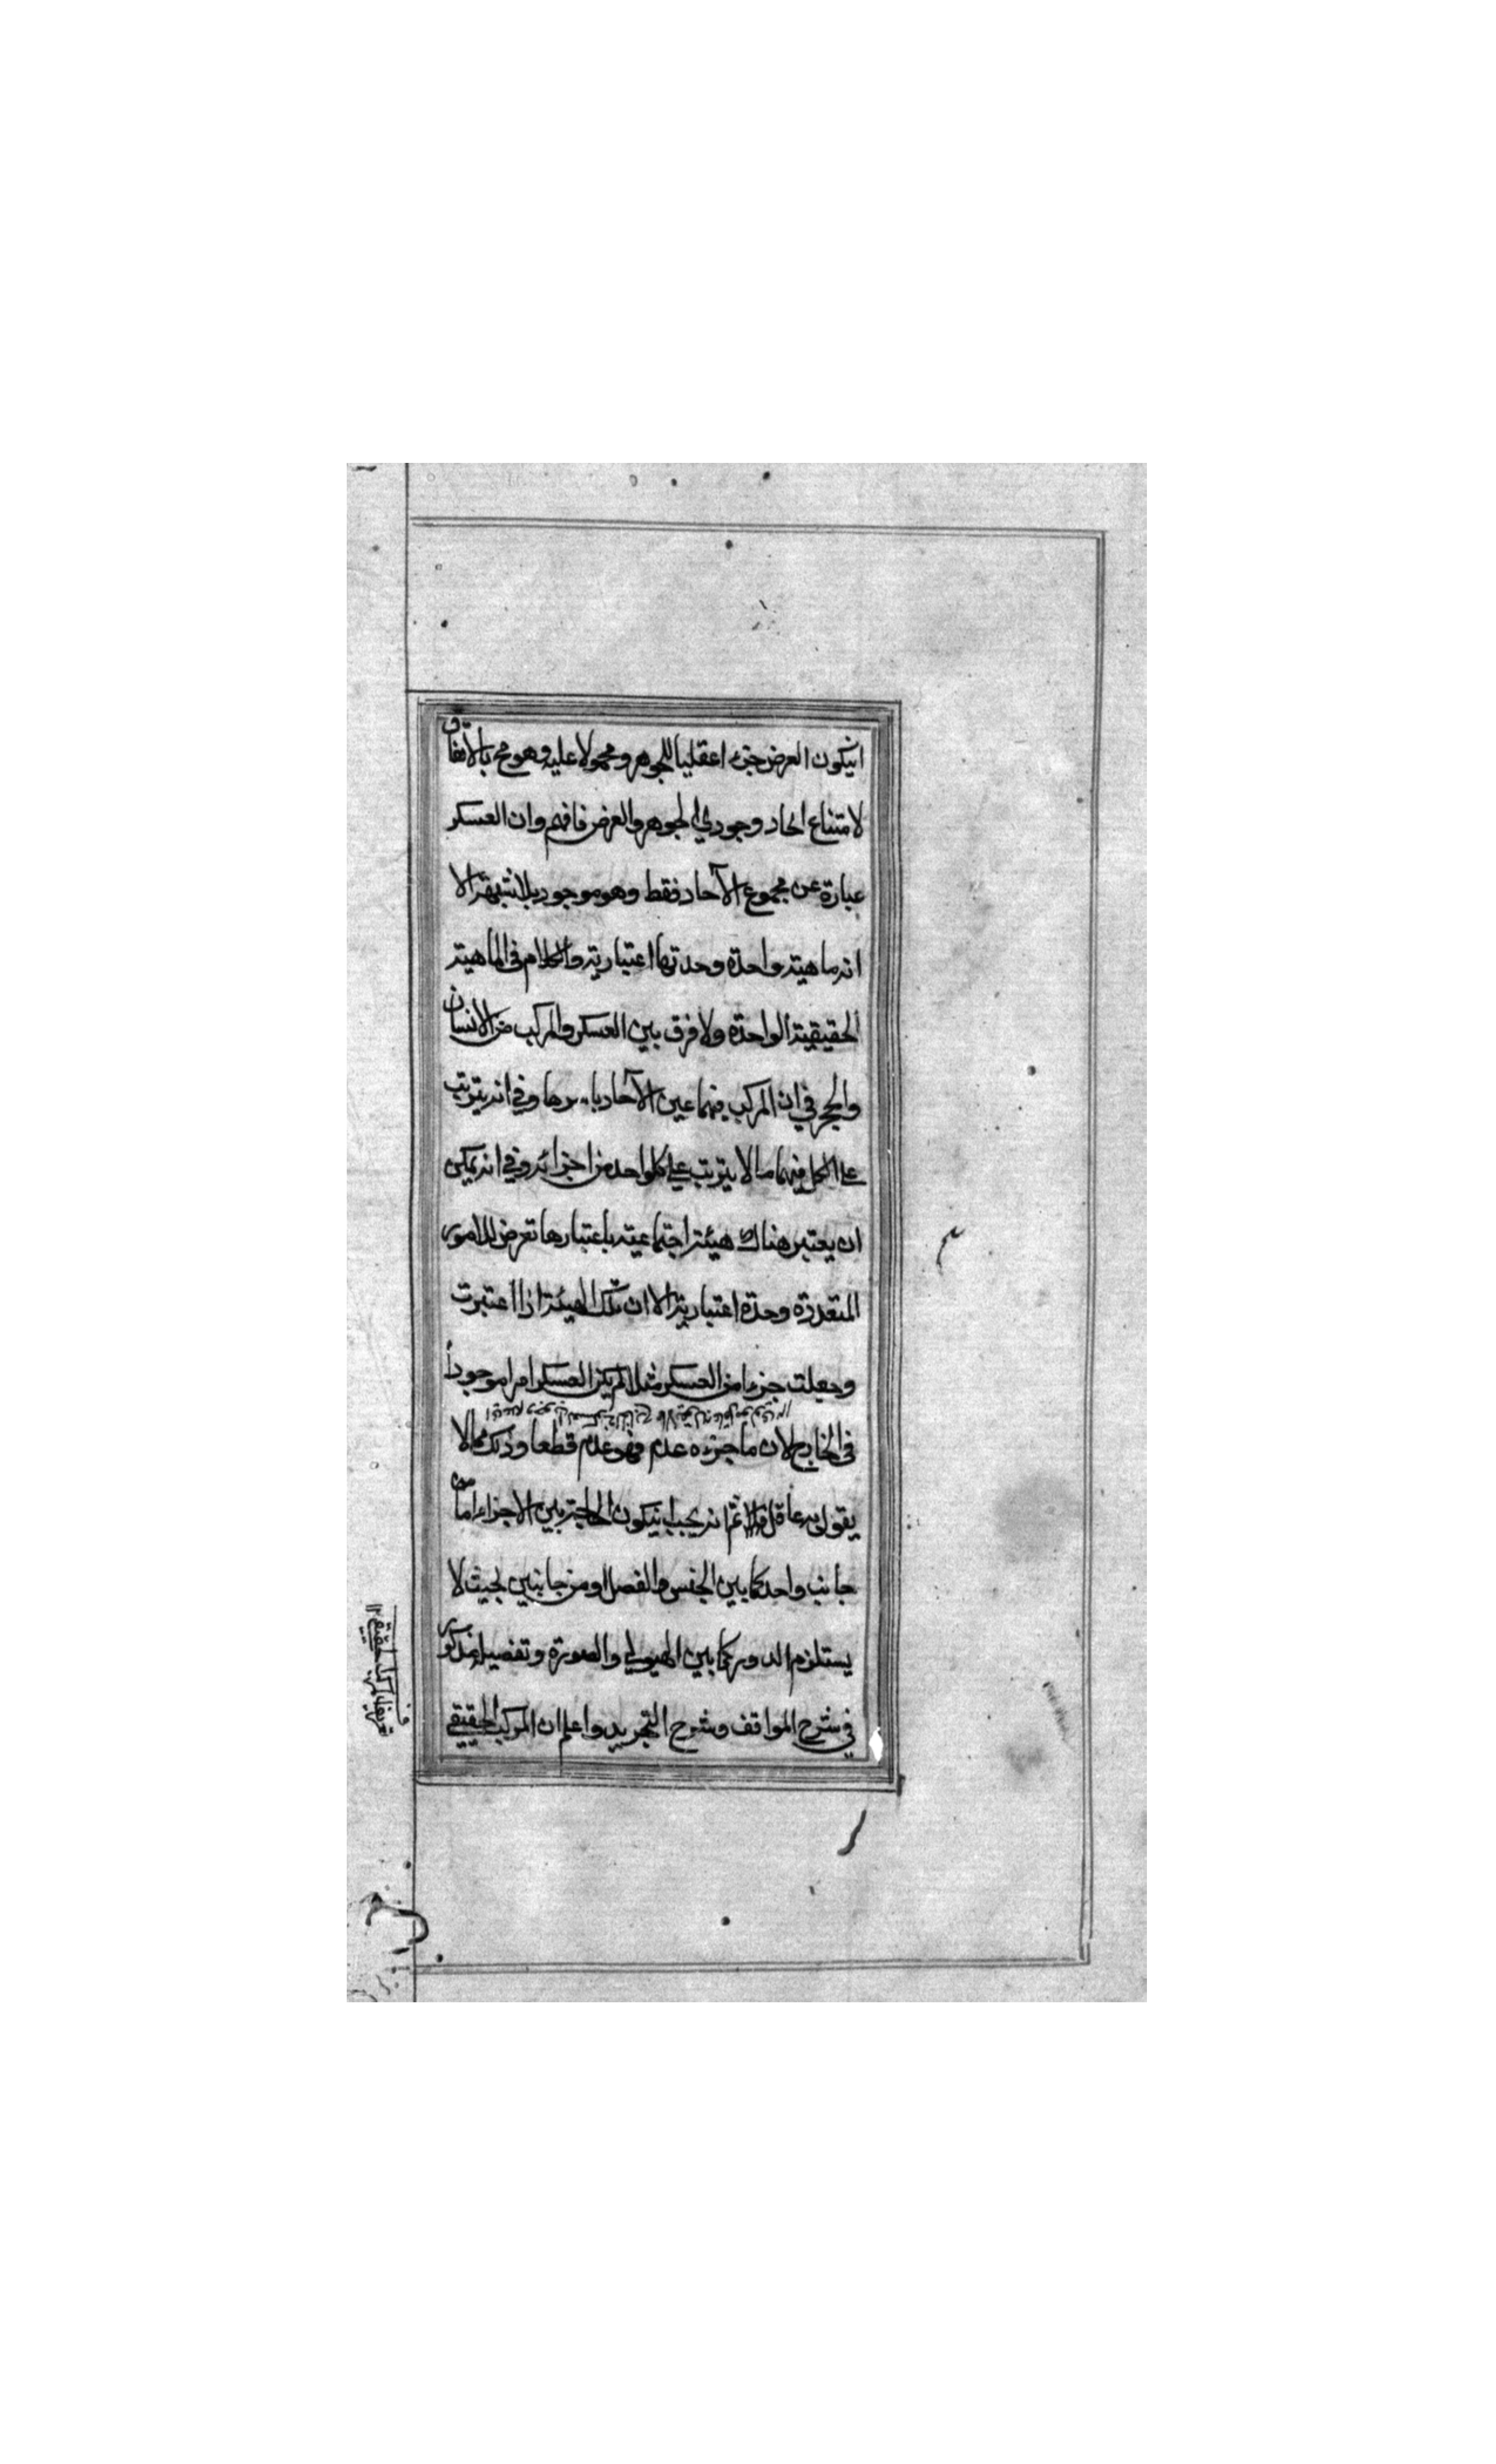 انيكون العرض جزء اعقليا للجوهر ومحمولا عليه وهو مح بالاتفاق
لامتناع اتحاد وجودي الجوهر والعرض فافهم وان العسكر
عبارة عن مجموع الآحاد فقط وهو موجود بلا شبهة الا
انه ماهية واحدة وحدتها اعتبارية والكلام في الماهية
الحقيقية الواحدة ولا فرق بين العسكر والمركب من الانسان
والحجر في ان المركب فيهما عين الآحاد باسرها وفي انه يترتب
على الكل فيهما ما لا يترتب على كلواحد من اجزائه وفي انه يمكن
ان يعتبر هناك هيئة اجتماعية باعتبارها تعرض للامور
المتعددة وحدة اعتبارية الا ان تلك الهيئة اذا اعتبرت
وجعلت جزءا من العسكر مثلا لم يكن العسكر امرا موجوداً
في الخارج لان ما جزءه عدم فهو عدم قطعا وذلك مما لا
يقول به عاقل ثم انه يجب انيكون الحاجة بين الاجزاء اما من
جانب واحد كما بين الجنس والفصل او من جانبين بحيث لا
يستلزم الدور كما بين الهيولي والصورة وتفصيله مذكور
في شرح المواقف وشرح التجريد واعلم ان المركب الحقيقي
تعريف المركب الحقيقي